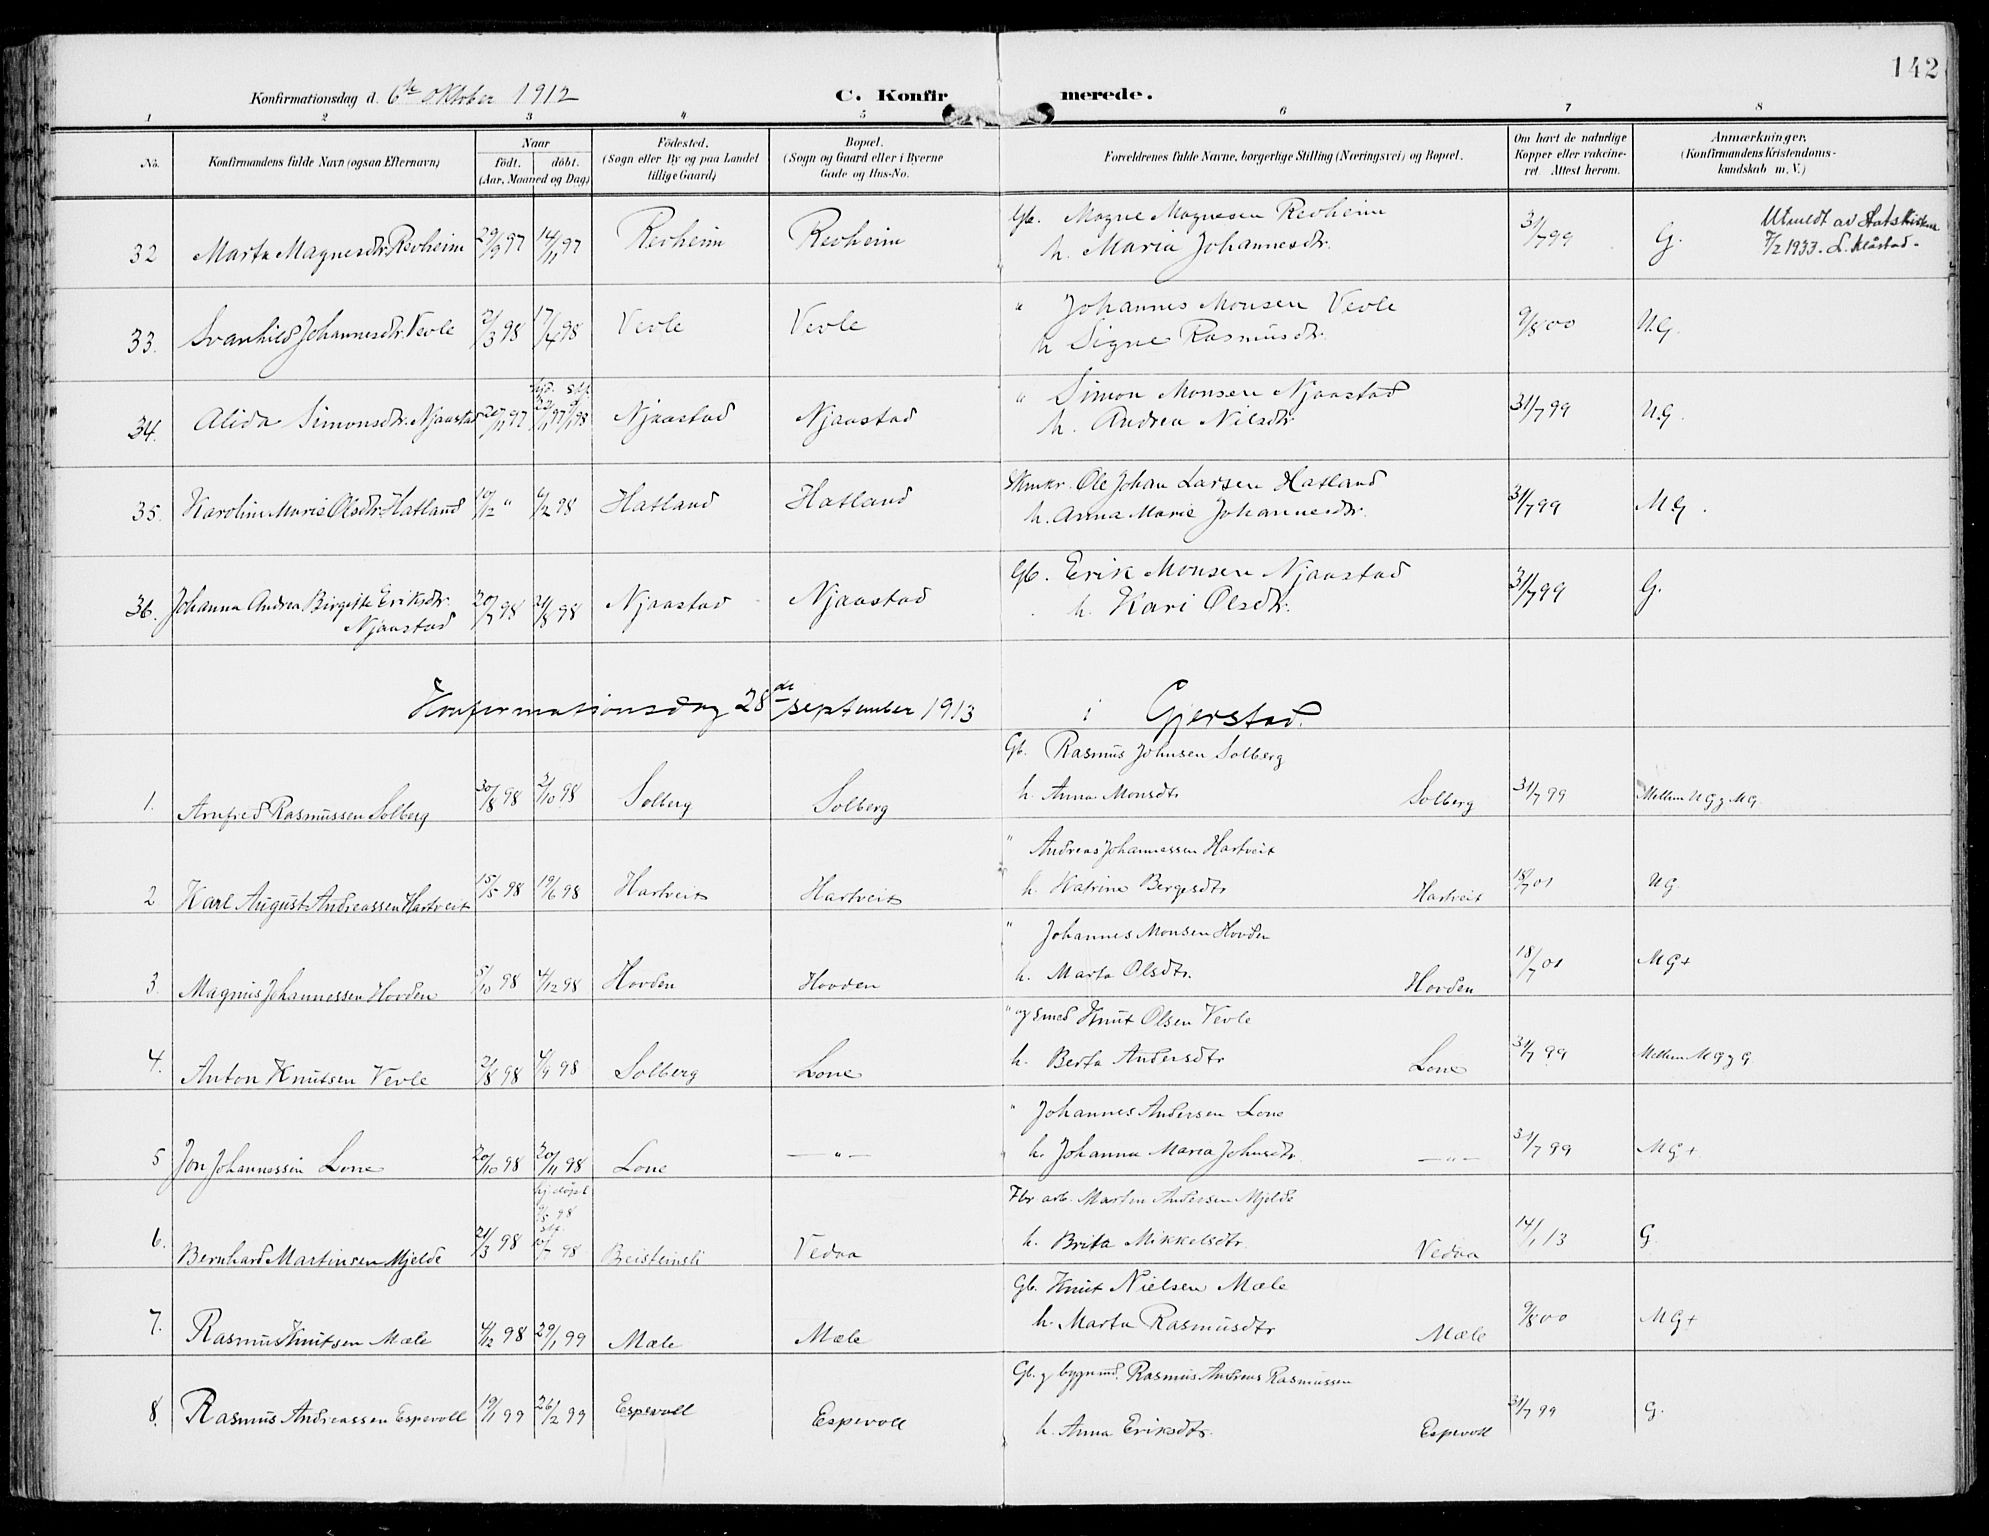 142
Konfirmationsdag d. 6te oktober 1912 C. Konfirmerede.
1 2 3 4 5 6 7 8
No. Konfirmandens fulde Navn (ogsaa Efternavn) Naar födt. döbt. (Aar, Maaned og Dag) Födested. (Sogn eller By og paa Landet tillige Gaard) Bopæl. (Sogn og Gaard eller i Byerne Gade og Hus-No. Forældrenes fulde Navne, borgerlige Stilling (Næringsvei) og Bopæl. Om havt de naturlige Kopper eller vakcineret. Attest herom. Anmærkninger. (Konfirmandens Kristendomskundskab m. V.)
32 Marta Magnesdtr. Revheim 29/9 97 14/11 97 Revheim Revheim Gb. Magne Magnesen Revheim 31/7 99 G. Utmeldt av Statskirken
h. Maria Johannesdtr. 7/2 1933. L. Klåstad.
33. Svanhild Johannesdtr. Vevle 2/3 98 17/4 98 Vevle Vevle " Johannes Monsen Vevle 9/8 00 N.G.
h Signe Rasmusdtr.
34. Alida Simonsdtr. Njaastad 20/11 97 22/11 97 Njaastad Njaastad " Simon Monsen Njaastad 31/7 99 N.G.
h. Andrea Nilsdtr
35. Karoline Marie Olsdtr. Hatland 10/12 " 6/2 98 Hatland Hatland Ole Johan Larsen Hatland 31/7 99 M.G.
h. Anna Marie Johannesdtr.
36. Johanna Andrea Birgitte Eriksdtr. 20/7 98 21/8 98 Njaastad Njaastad Gb. Erik Monsen Njaastad 31/7 99 G.
Njaastad h. Kari Olsdtr.
Konfirmationsdag 28de september 1913 i Gjerstad.
1. Arnfred Rasmussen Solberg 30/8 98 2/10 98 Solberg Solberg Gb. Rasmus Johnsen Solberg 31/7 99 Mellem NG og MG.
h. Anna Monsdtr Solberg
2 Karl August Andreassen Hartveit 15/5 98 19/6 98 Hartveit Hartveit " Andreas Johannessen Hartveit 18/7 01 NG
h. Katrine Bergesdtr Hartveit
3. Magnus Johannessen Hovden 5/10 98 4/12 98 Hovden Hovden " Johannes Monsen Hovden 18/7 01 MG+
h. Marta Olsdtr. Hovden
4. Anton Knutsen Vevle 2/8 98 4/9 98 Solberg Lone " og smed Knut Olsen Vevle 31/7 99 Mellem MG og G.
h. Berta Andersdtr Lone
5 Jon Johannessen Lone 20/10 98 20/11 98 Lone — " — " Johannes Andersen Lone 31/7 99 MG+
h. Johanna Maria Johnsdtr. — " —
6. Bernhard Martinsen Mjelde 21/3 98 hj. døpt 98 98 Beisteinsli Vedaa Fbr. arb. Martin Andersen Mjelde 14/1 13 G.
h. Brita Mikkelsdtr. Vedaa
7. Rasmus Knutsen Mæle 4/12 98 29/1 99 Mæle Mæle Gb. Knut Nielsen Mæle 9/8 00 MG+
h. Marta Rasmusdtr Mæle
8. Rasmus Andreassen Espevoll 19/1 99 26/2 99 Espevoll Espevoll Gb. og bygmd. Rasmus Andreas Rasmussen 31/7 99 G.
h. Anna Eriksdtr. Espevoll